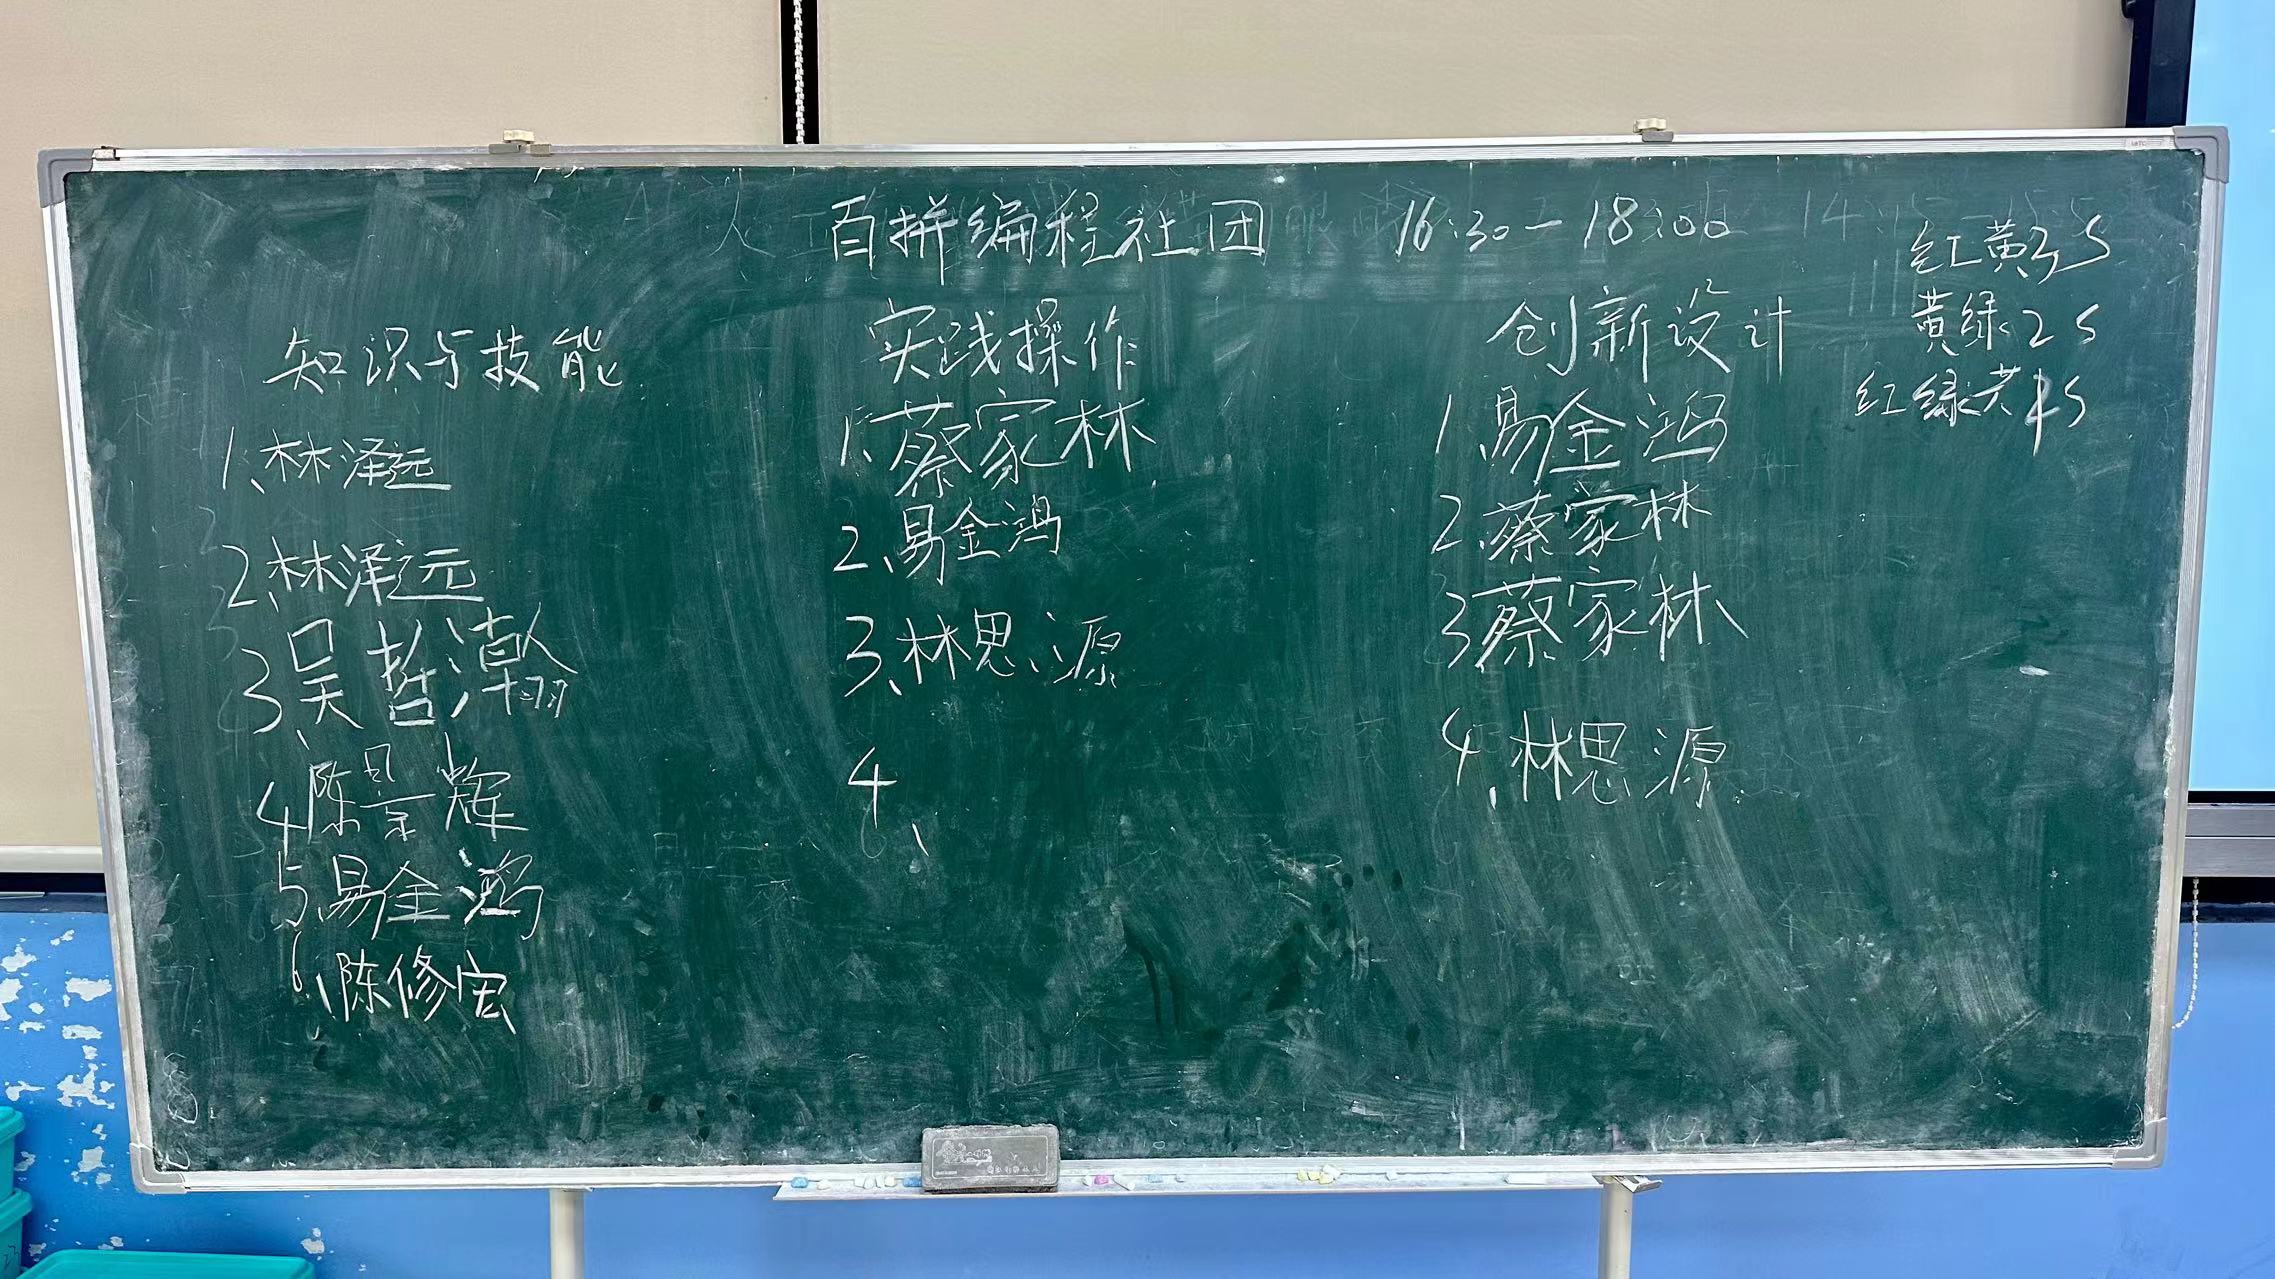 百拼编程社团 16:30-18:00
知识与技能
1、林泽远
2、林泽远
3、吴哲瀚
4、陈景辉
5、易金鸿
6、陈修宏
实践操作
1、蔡家林
2、易金鸿
3、林思源
4、
创新设计
1、易金鸿
2、蔡家林
3蔡家林
4、林思源
红黄3S
黄绿2S
红绿共4S